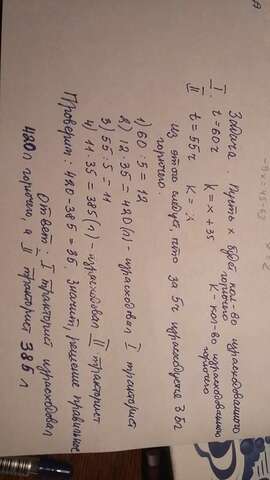 Задача. Пусть x будет кол-во израсходованного
горючего
I. t = 60г K = x + 35 K - кол-во израсходованного
горючего
II t = 55г K = x
Из этого следует, что за 5г израсходуется 35г
горючего.
1) 60 : 5 = 12
2) 12 · 35 = 420 (л) - израсходовал I тракторист
3) 55 : 5 = 11
4) 11 · 35 = 385 (л) - израсходовал II тракторист
Проверим: 420 - 385 = 35. Значит, решение правильное
Ответ: I тракторист израсходовал
420 л горючего, а II тракторист 385 л